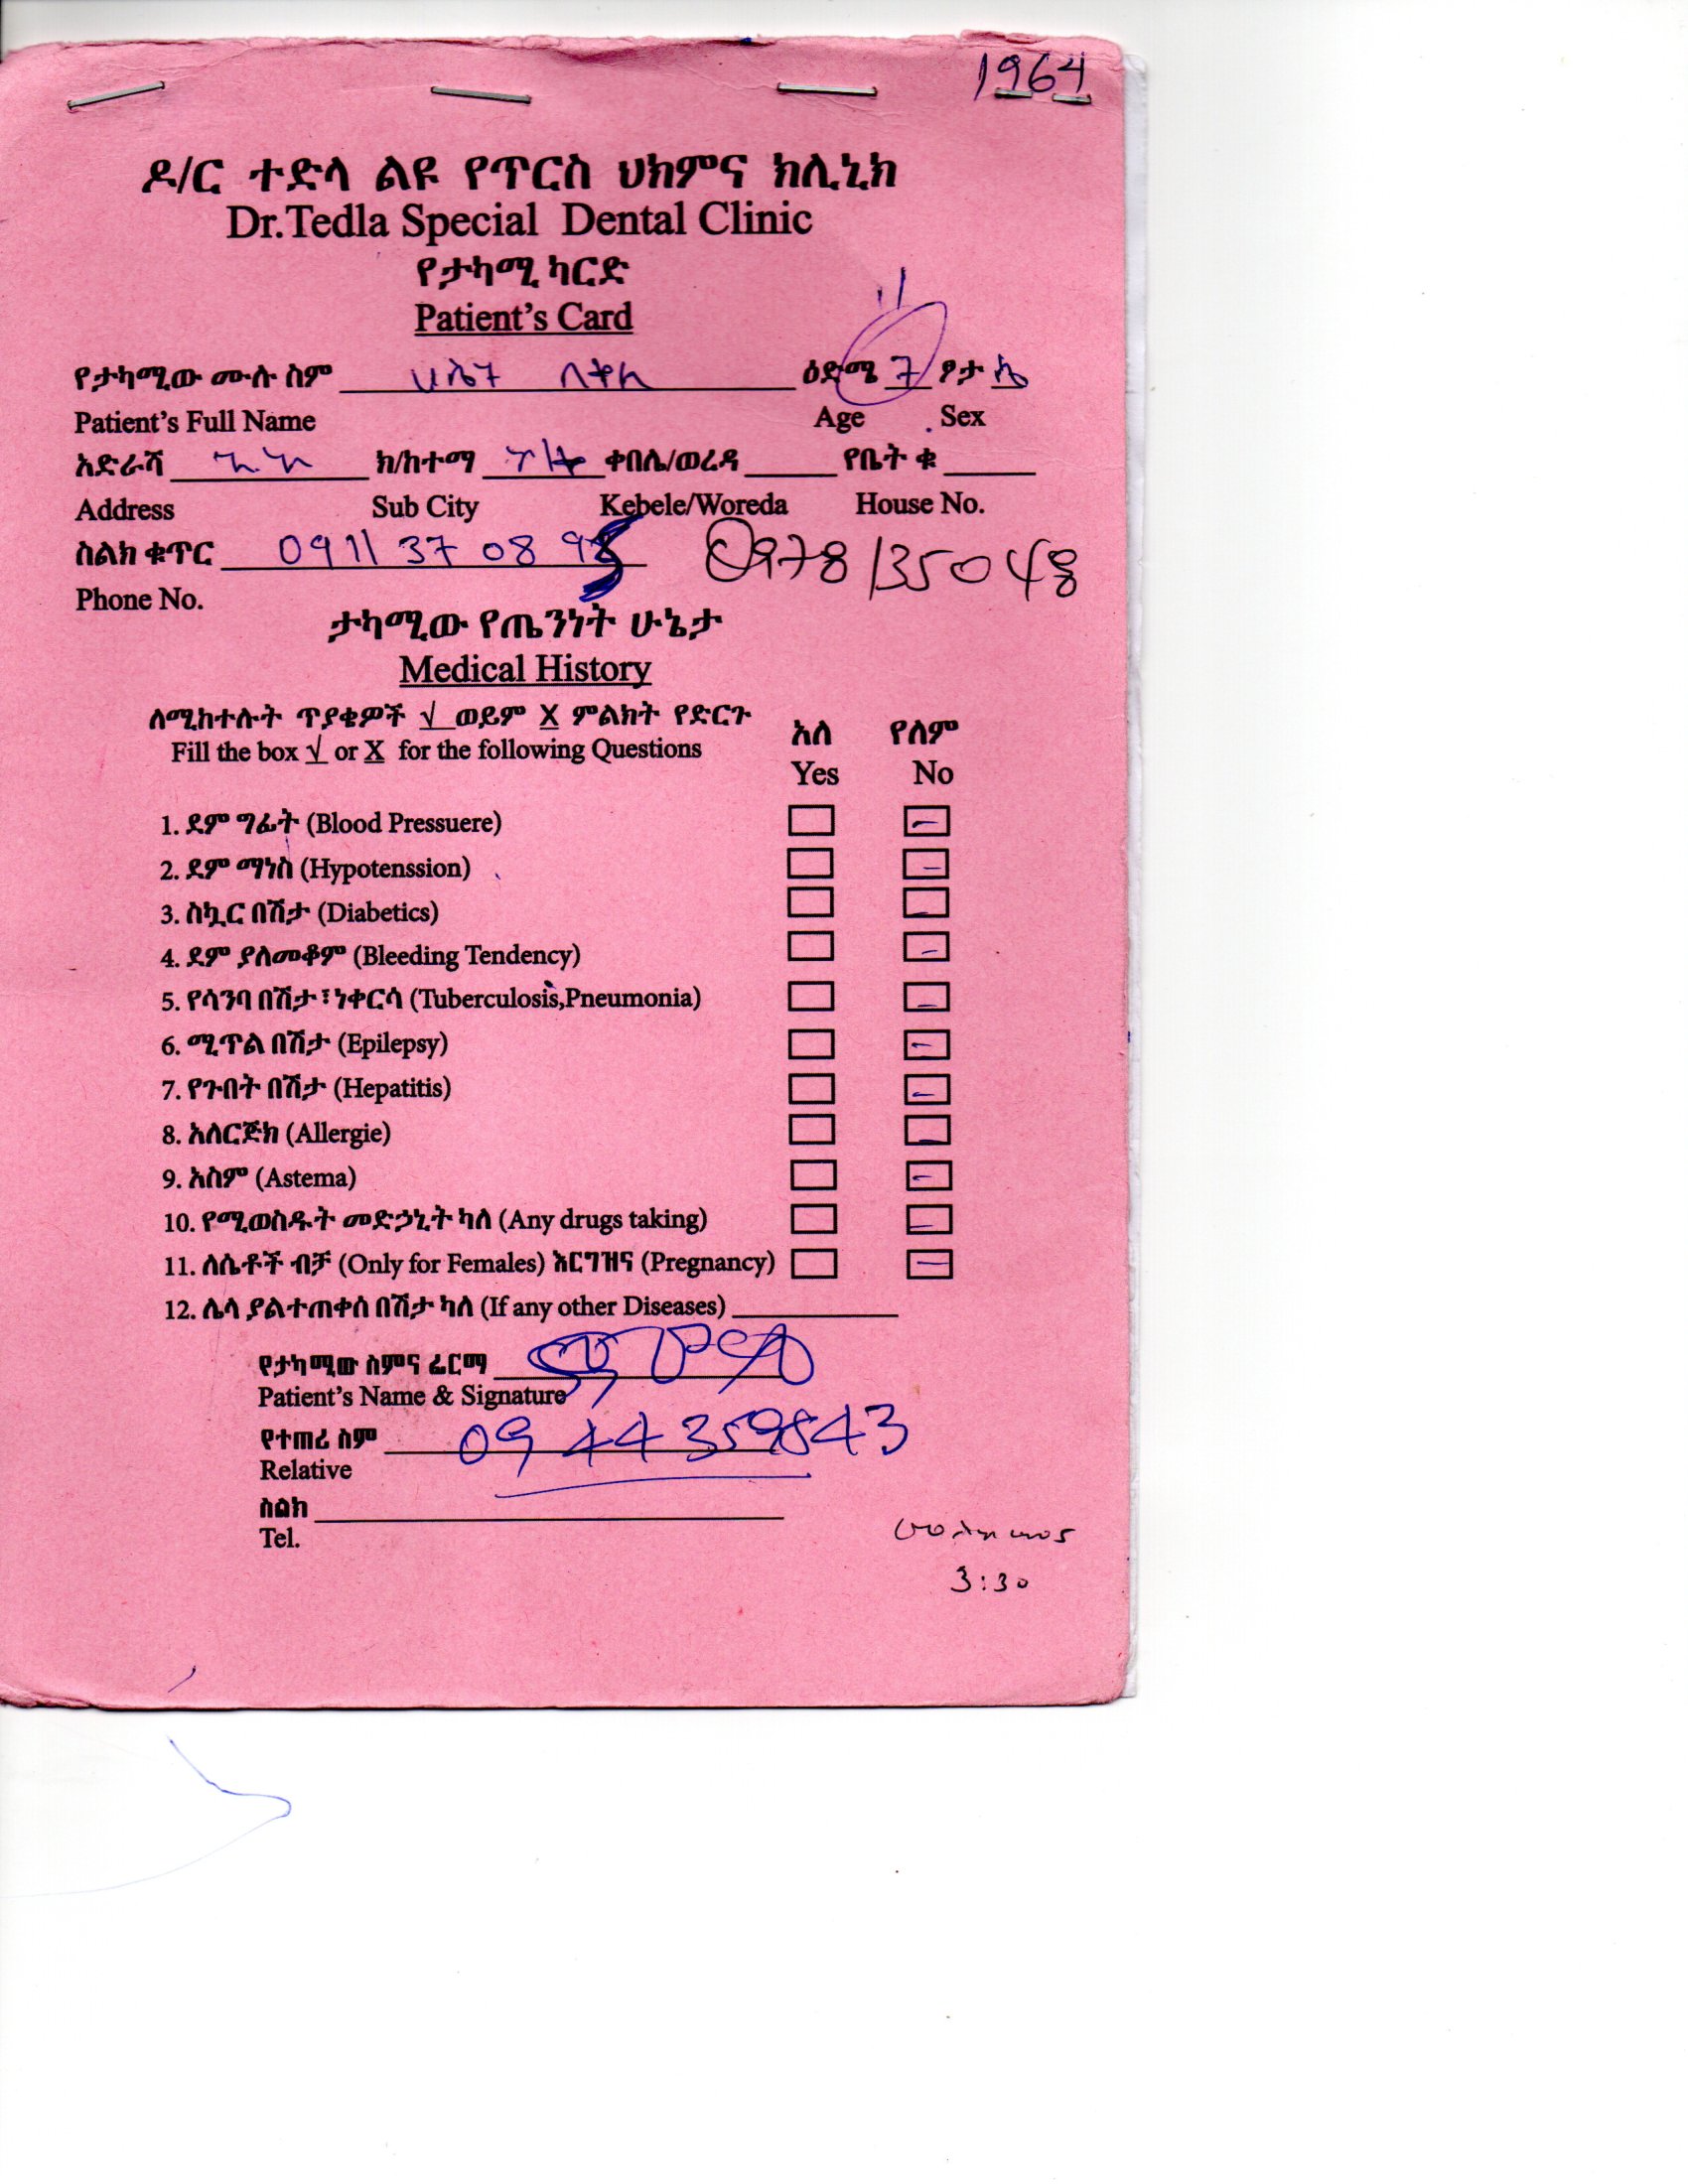 1964
ዶ/ር ተድላ ልዩ የጥርስ ህክምና ክሊኒክ
Dr.Tedla Special Dental Clinic
የታካሚ ካርድ
Patient's Card
11
የታካሚው ሙሉ ስም ዕድሜ 7 ፆታ ሴ
Patient's Full Name Age Sex
አድራሻ ክ/ከተማ ቀበሌ/ወረዳ የቤት ቁ
Address Sub City Kebele/Woreda House No.
ስልክ ቁጥር 0911 37 08 0978135048
Phone No.
ታካሚው የጤንነት ሁኔታ
Medical History
ለሚከተሉት ጥያቄዎች √ ወይም X ምልክት የድርጉ አለ የለም
Fill the box √ or X for the following Questions Yes No
1. ደም ግፊት (Blood Pressuere) -
2. ደም ማነስ (Hypotenssion) -
3. ስኳር በሽታ (Diabetics) -
4. ደም ያለመቆም (Bleeding Tendency) -
5. የሳንባ በሽታ፣ነቀርሳ (Tuberculosis,Pneumonia) -
6. ሚጥል በሽታ (Epilepsy) -
7. የጉበት በሽታ (Hepatitis) -
8. አለርጅክ (Allergie) -
9. አስም (Astema) -
10. የሚወስዱት መድኃኒት ካለ (Any drugs taking) -
11. ለሴቶች ብቻ (Only for Females) እርግዝና (Pregnancy) -
12. ሌላ ያልተጠቀሰ በሽታ ካለ (If any other Diseases)
የታካሚው ስምና ፊርማ
Patient's Name & Signature
የተጠሪ ስም 0944359843
Relative
ስልክ
Tel.
3:30